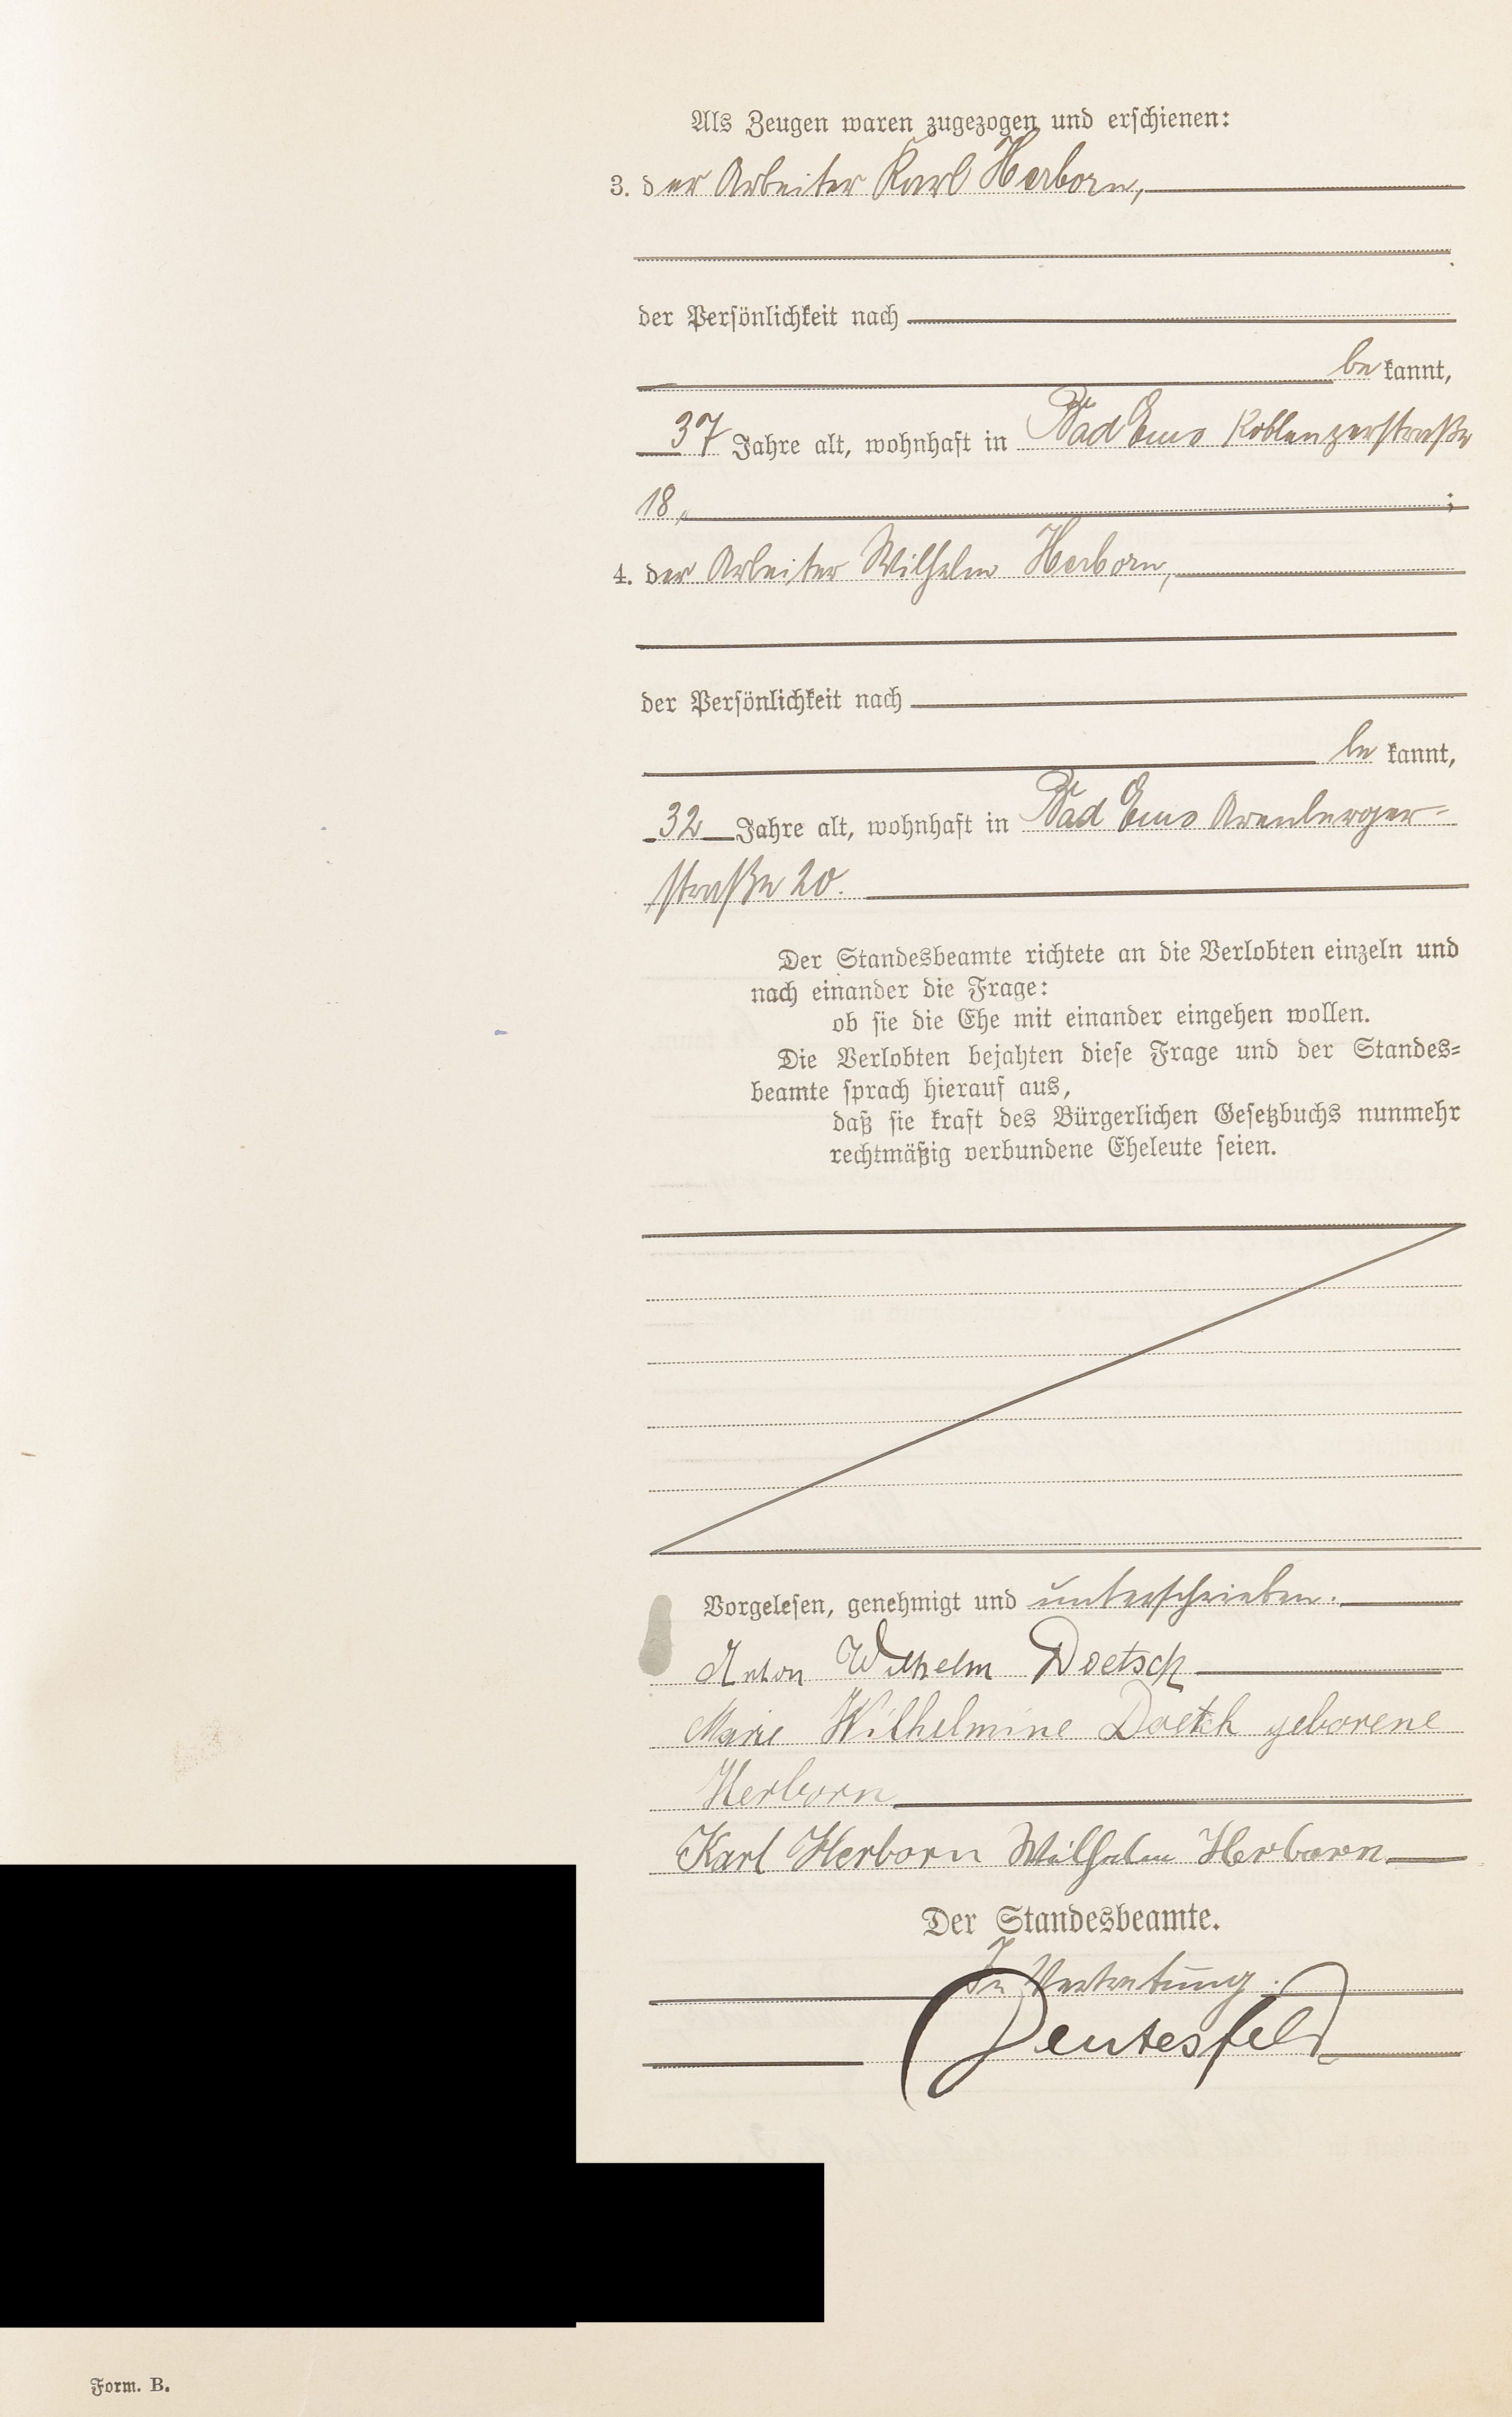 Als Zeugen waren zugezogen und erschienen:
3. der Arbeiter Karl Herborn,
der Persönlichkeit nach
be kannt,
37 Jahre alt, wohnhaft in Bad Ems Koblenzerstraße
18,;
4. der Arbeiter Wilhelm Herborn,
der Persönlichkeit nach
be kannt,
32 Jahre alt, wohnhaft in Bad Ems Arenberger-
straße 20.
Der Standesbeamte richtete an die Verlobten einzeln und
nach einander die Frage:
ob sie die Ehe mit einander eingehen wollen.
Die Verlobten bejahten diese Frage und der Standes-
beamte sprach hierauf aus,
daß sie kraft des Bürgerlichen Gesetzbuchs nunmehr
rechtmäßig verbundene Eheleute seien.
Vorgelesen, genehmigt und unterschrieben.
Anton Wilhelm Doetsch
Marie Wilhelmine Doetch geborene
Herborn
Karl Herborn Wilhelm Herborn
Der Standesbeamte.
In Vertretung.
Form. B.